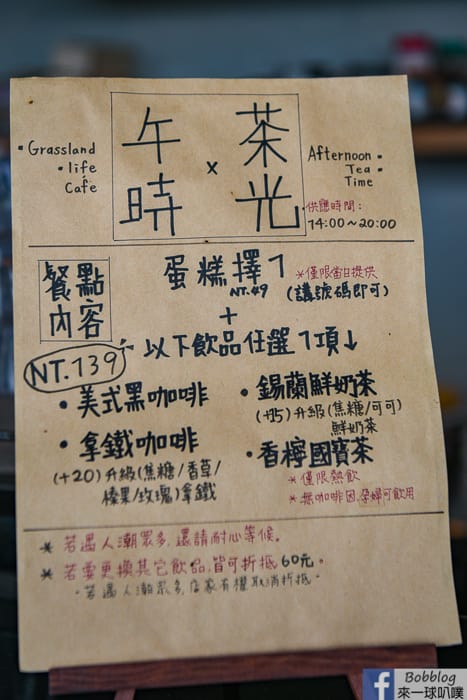 • Grassland
• life
Cafe
午 × 茶
時 光
Afternoon •
Tea •
Time
供應時間:
14:00~20:00
餐點
內容
蛋糕擇1
NT.49
*僅限當日提供
(講號碼即可)
+
NT.139
以下飲品任選1項↓
• 美式黑咖啡
• 拿鐵咖啡
(+20)升級(焦糖/香草/
榛果/玫瑰)拿鐵
• 錫蘭鮮奶茶
(+15)升級(焦糖/可可)
鮮奶茶
• 香檸國寶茶
*僅限熱飲
*無咖啡因,孕婦可飲用
* 若遇人潮眾多,還請耐心等候。
* 若要更換其它飲品,皆可折抵60元。
• 若遇人潮眾多,店家有權取消折抵•
Bobblog
來一球叭噗